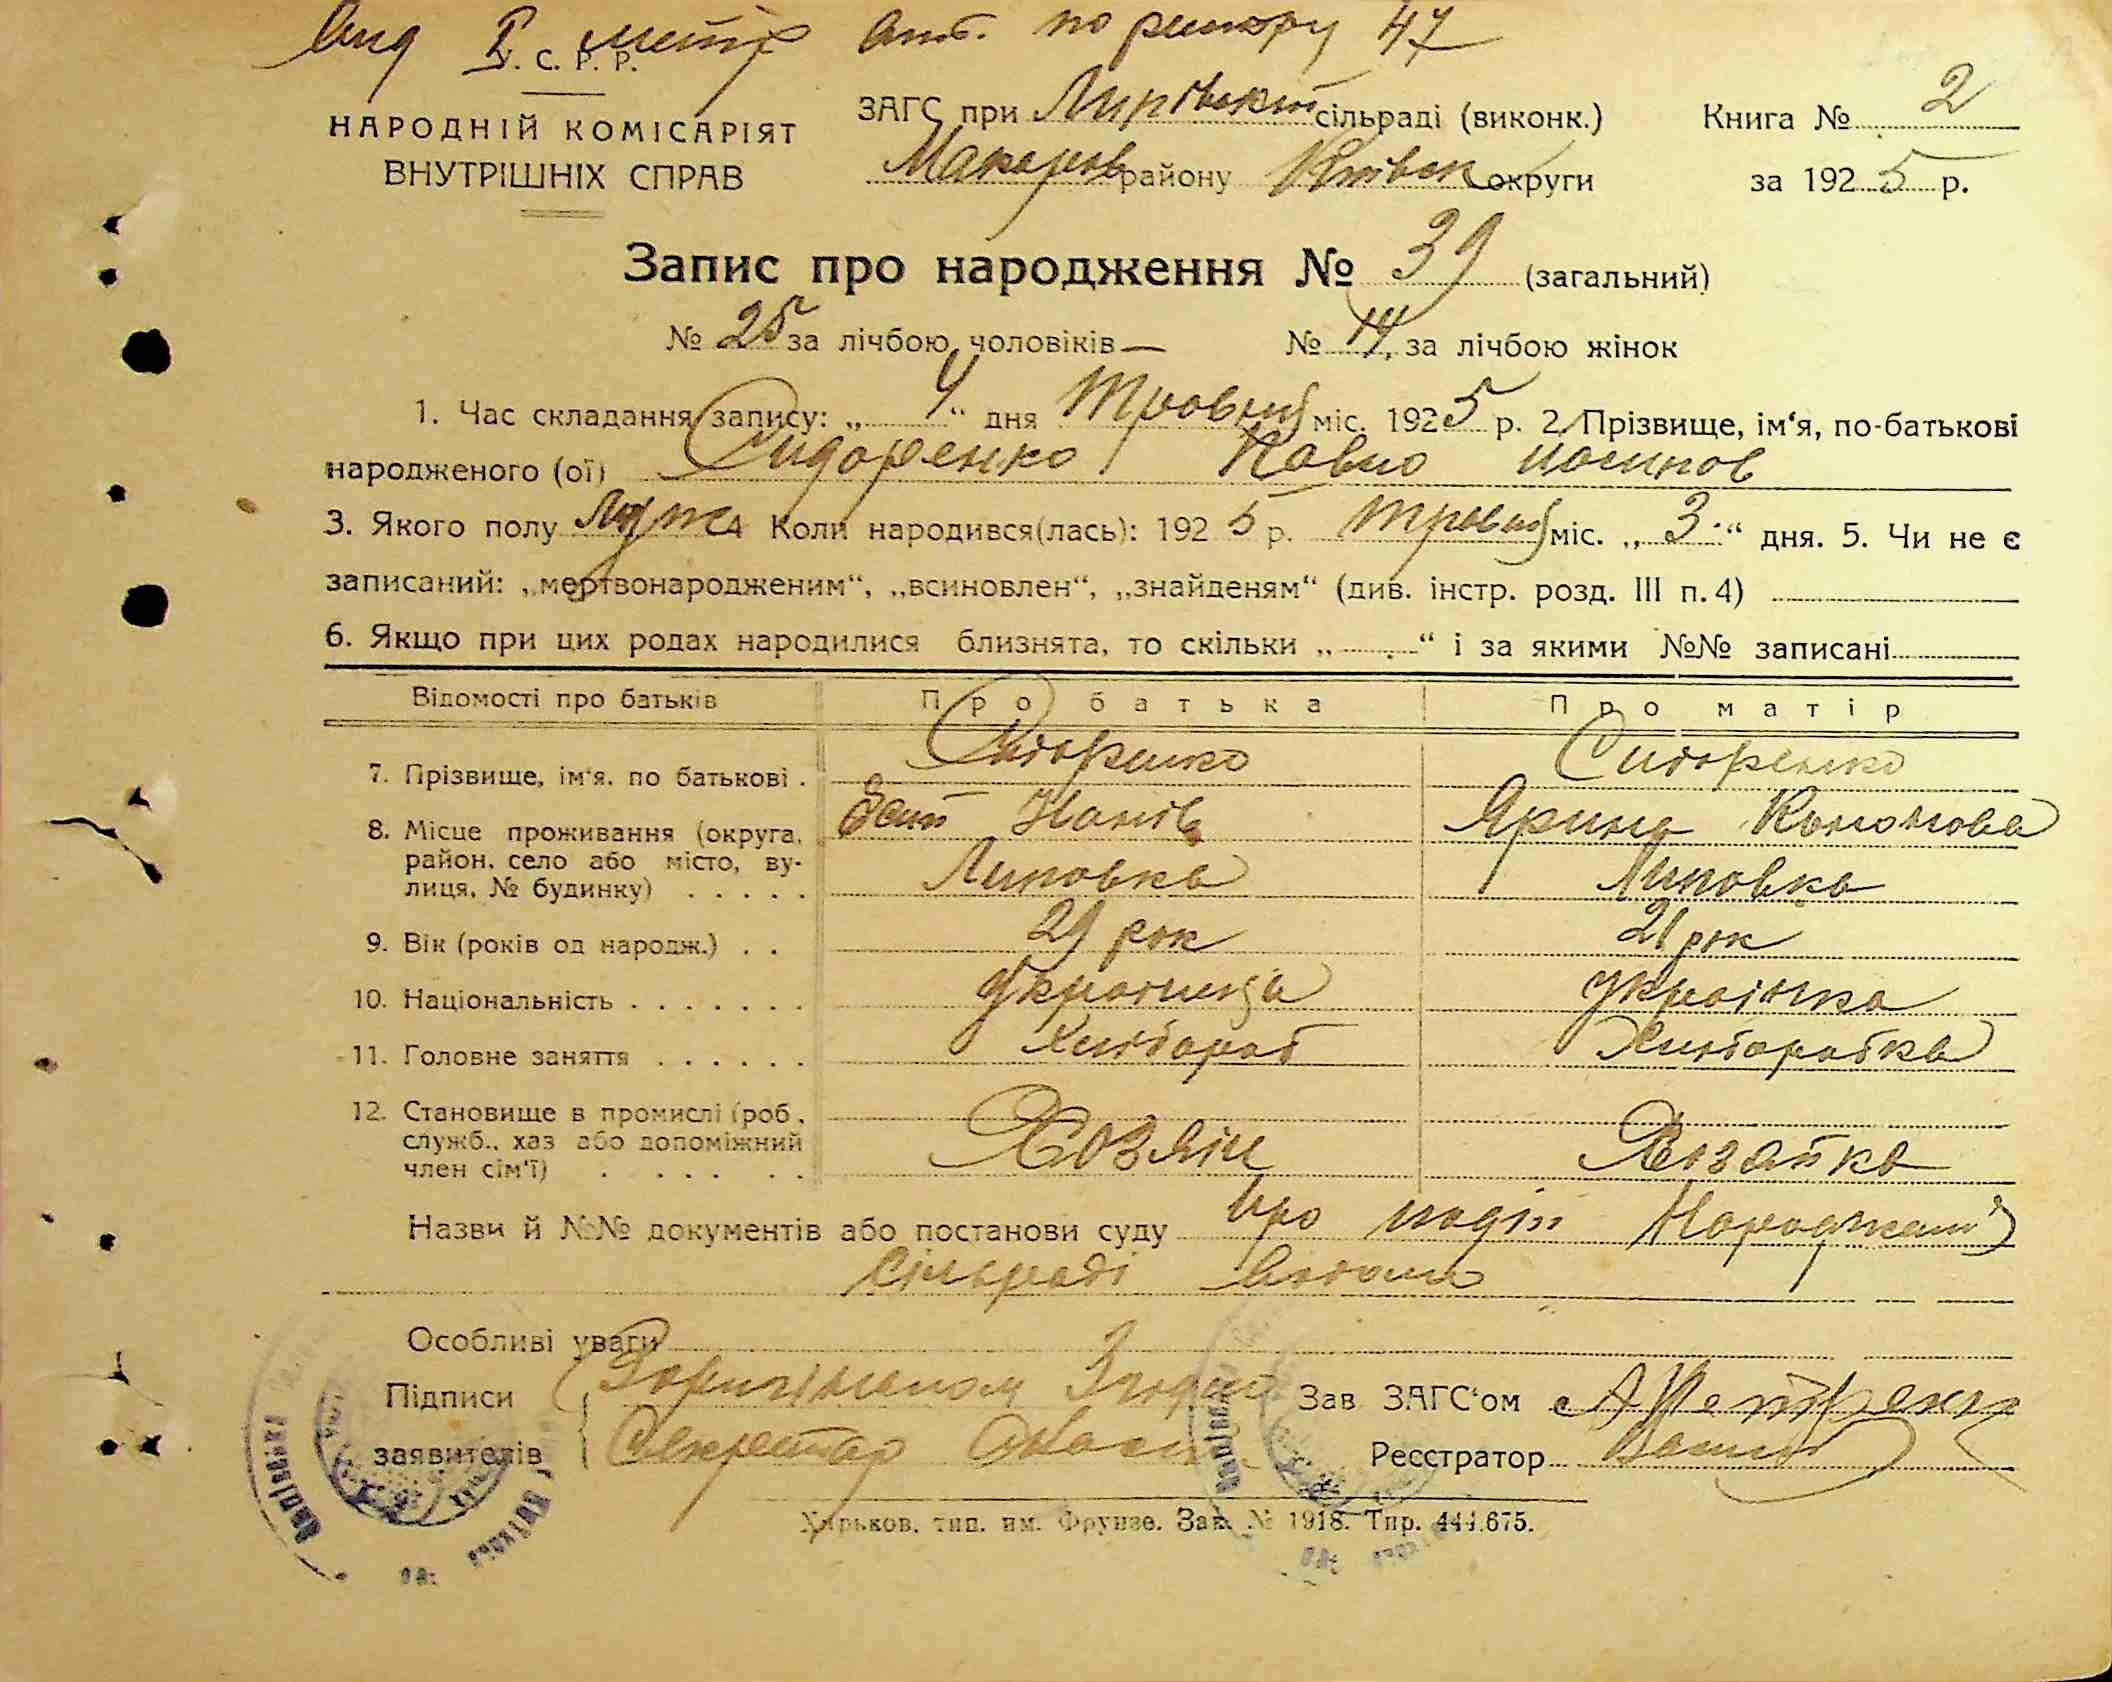 по 47
У. С. Р. Р.
НАРОДНІЙ КОМІСАРІЯТ
ВНУТРІШНІХ СПРАВ
ЗАГС при Липівській сільраді (виконк.)
Макарів району Київськ округи
Книга № 2
за 1925 р.
Запис про народження № 39 (загальний)
№ 25 за лічбою чоловіків — № 14, за лічбою жінок
1. Час складання запису: „ 4 “ дня Травня міс. 1925 р. 2. Прізвище, ім‘я, по-батькові
народженого (ої) Сидоренко Павло
3. Якого полу Муж 4 Коли народився(лась): 1925 р. Травня міс. „ 3 “ дня. 5. Чи не є
записаний: „мертвонародженим“, „всиновлен“, „знайденям“ (див. інстр. розд. III п. 4)
6. Якщо при цих родах народилися близнята, то скільки „ “ і за якими №№ записані
Відомості про батьків Про батька Про матір
7. Прізвище, ім‘я, по батькові . Сидоренко Сидоренко
Ярина Кононова
8. Місце проживання (округа,
район, село або місто, ву-
лиця, № будинку) . . . . . Липовка Липовка
9. Вік (років од народж.) . . 29 рок 21 рок
10. Національність . . . . . . . Українець Українка
11. Головне заняття . . . . . . Хлібороб Хліборобка
12. Становище в промислі (роб.,
служб., хаз або допоміжний
член сім‘ї) . . . . . . Хозяін Хозайка
Назви й №№ документів або постанови суду Про подію Народження
Сільраді
Особливі уваги
Підписи Зав ЗАГС‘ом
заявителів Секретар Реєстратор
Харьков. тип. им. Фрунзе. Зак. № 1918. Тир. 444.675.